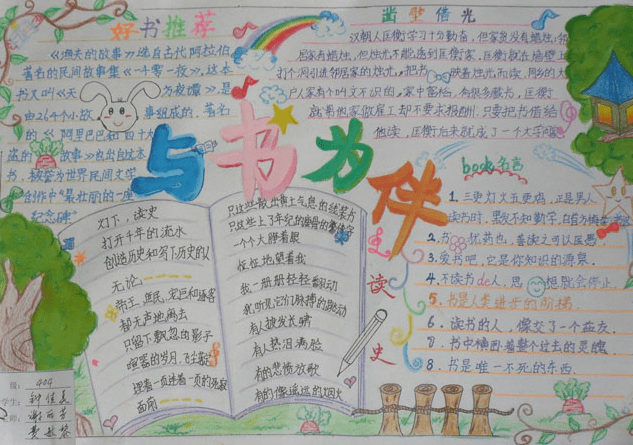 好书推荐
《渔夫的故事》选自古代阿拉伯
著名的民间故事集《一千零一夜》,这本
书又叫《天方夜谭》,是
由264个小故事组成的,著名
的《阿里巴巴和四十大
盗的故事》也出自这本
书,被誉为世界民间文学
创作中"最壮丽的一座
纪念碑"
凿壁借光
汉朝人匡衡学习十分勤奋,但家贫没有蜡烛,邻
居家有蜡烛,但烛光不能透到匡衡家,匡衡就在墙壁上
打个洞引进邻居家的烛光,把书映着烛光而读,同乡的大
户人家有个叫文不识的,家中富裕,有很多藏书,匡衡
就帮他家做雇工却不要求报酬,只要把书借给
他读,匡衡后来就成了一个大学
与书为伴
灯下,读史
打开千年的流水
创造历史和写下历史的人
无论
帝王、庶民、宠臣和逐客
都无声地离去
只留下飘忽的影子
喧嚣的岁月,飞尘
踩着一页连着一页的
面前
只这些散出黄土气息的线装书
只这些上了年纪的
一个大睁着眼
怔怔地望着我
我一册册轻轻翻动
我听见它们脉搏的跳动
有人披发长啸
有人热泪满脸
有的悲愤放歌
有的像遥远的烟火
读
史
book名言
1.三更灯火五更鸡,正是男人
读书时,黑发不知勤学早,白首方悔读书迟
2.书犹药也,善读之可以医愚
3.爱书吧,它是你知识的源泉.
4.不读书de人,思想就会停止.
5.书是人类进步的阶梯.
6.读书的人,像交了一个益友.
7.书中横卧着整个过去的灵魂.
8.书是唯一不死的东西.
级:404
学生:钟佳
师:谢丽芬